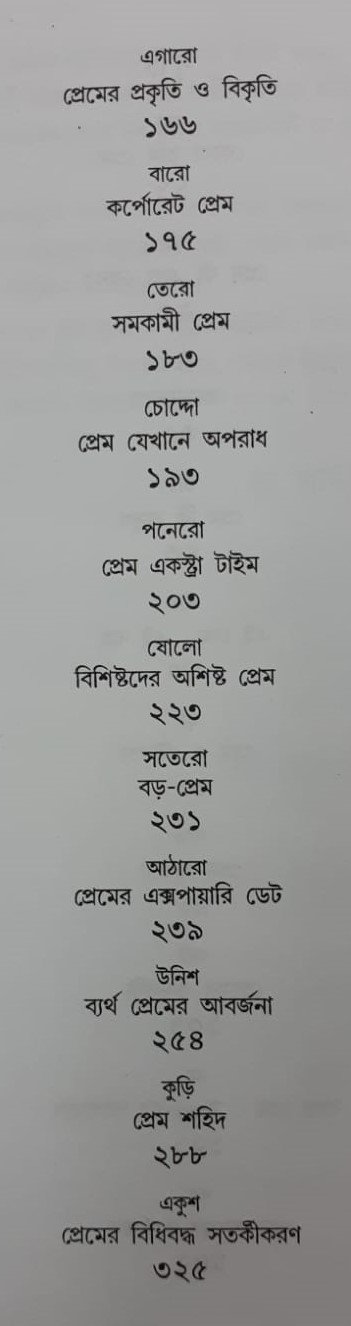 এগারো
প্রেমের প্রকৃতি ও বিকৃতি
১৬৬
বারো
কর্পোরেট প্রেম
১৭৫
তেরো
সমকামী প্রেম
১৮৩
চোদ্দো
প্রেম যেখানে অপরাধ
১৯৩
পনেরো
প্রেম একস্ট্রা টাইম
২০৩
ষোলো
বিশিষ্টদের অশিষ্ট প্রেম
২২৩
সতেরো
বড়-প্রেম
২৩১
আঠারো
প্রেমের এক্সপায়ারি ডেট
২৩৯
উনিশ
ব্যর্থ প্রেমের আবর্জনা
২৫৪
কুড়ি
প্রেম শহিদ
২৮৮
একুশ
প্রেমের বিধিবদ্ধ সতর্কীকরণ
৩২৫